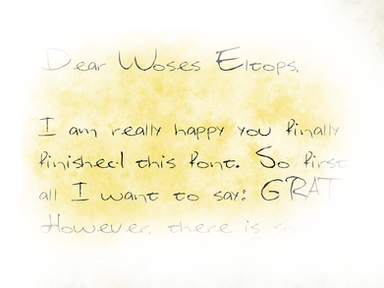 Dear Woses Eltops,
I am really happy you finally
finished this font. So first
all I want to say: GRAT
However, there is so